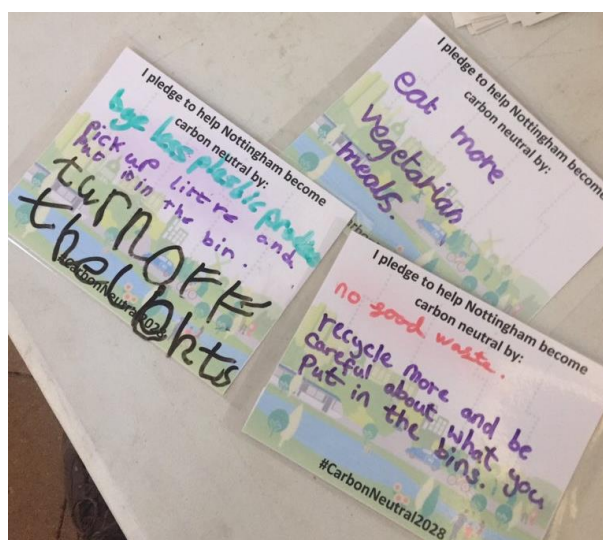 I pledge to help Nottingham become
carbon neutral by:
bye less plastic
pick up littre and
put it in the bin.
turn off
the lights
#CarbonNeutral2028
I pledge to help Nottingham become
carbon neutral by:
eat more
vegetarian
meals.
I pledge to help Nottingham become
carbon neutral by:
no food waste.
recycle more and be
careful about what you
put in the bins.
#CarbonNeutral2028